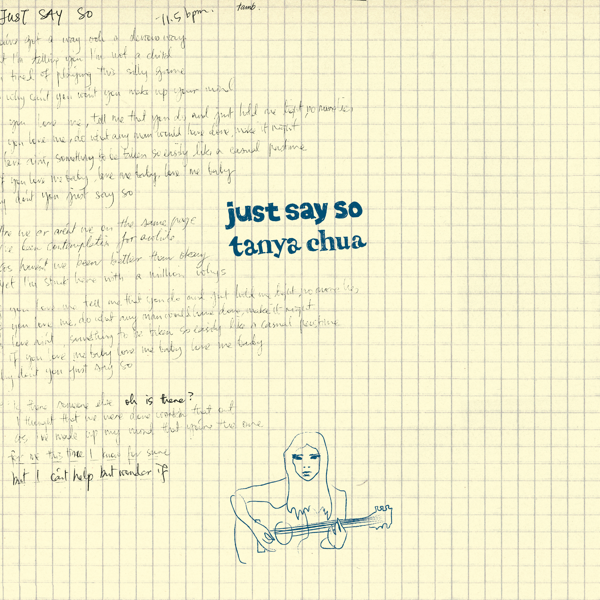 JUST SAY SO
-115 bpm.
tamb.
got a way with a devious way
I'm telling you I'm not a child
tired of playing this silly game
why can't you won't you make up your mind
you love me, tell me that you do and just hold me tight, no
you love me, do what any man would have done, make it right
love ain't, something to be taken so easily like a casual pastime
if you love me baby love me baby, love me baby
don't you just say so
Are we or aren't we on the same page
been contemplating for awhile
haven't we been better than okay
yet I'm stuck here with a million whys
you love me tell me that you do and just hold me tight, no
you love me, do what any man would have done, make it right
love ain't, something to be taken so easily like a casual pastime
if you love me baby love me baby love me baby
why don't you just say so
is there someone else oh is there?
I thought that we were done workin that out
as I've made up my mind that you're the one
this time I know for sure
but I can't help but wonder if
just say so
tanya chua